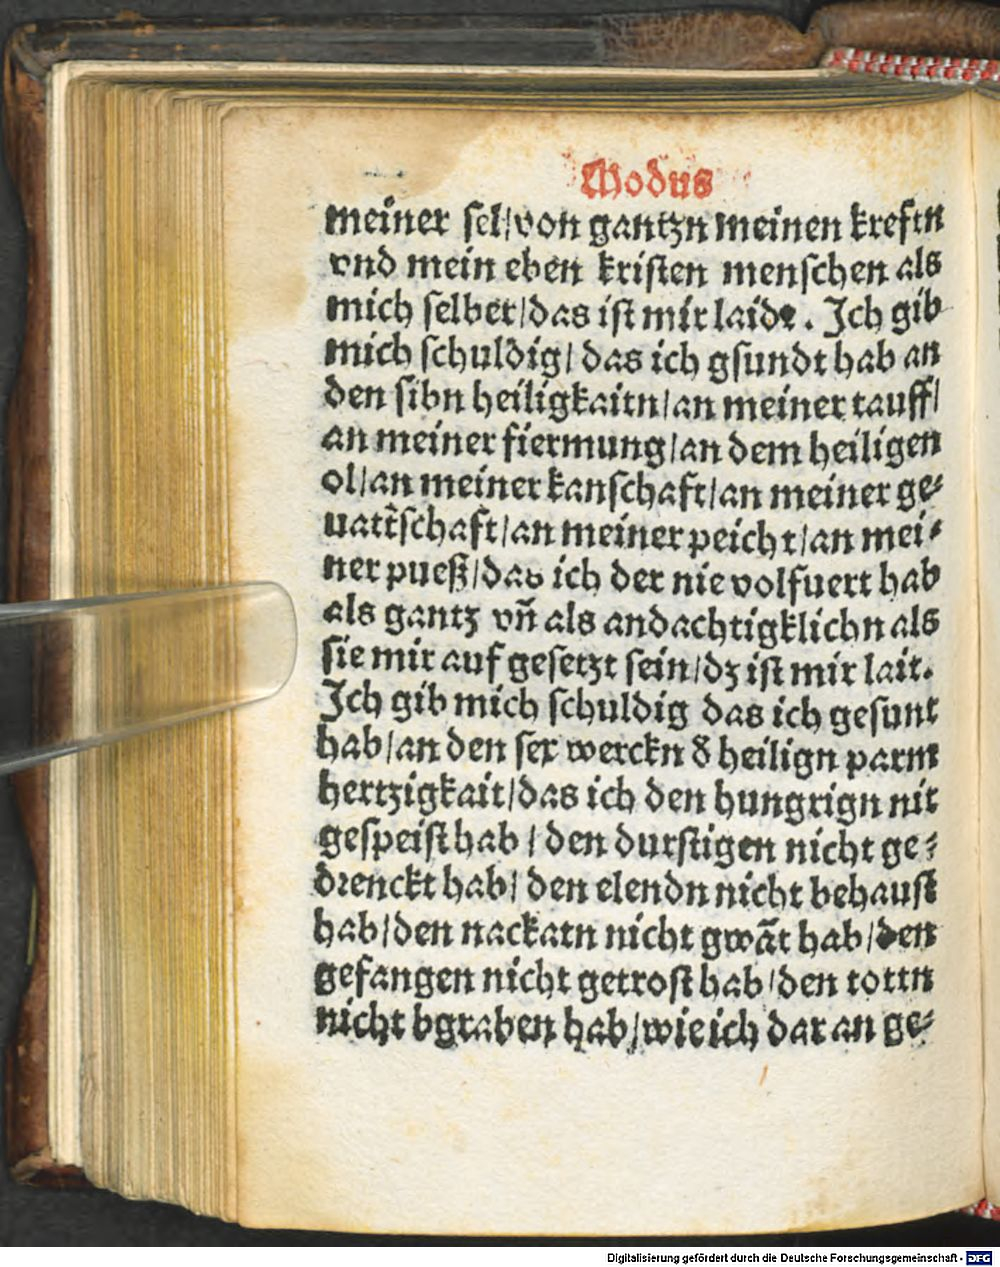 Modus
meiner sel/von gantzn meinen kreftn
vnd mein eben kristen menschen als
mich selber/das ist mir laidt. Ich gib
mich schuldig/das ich gsundt hab an
den sibn heiligkaitn/an meiner tauff/
an meiner fiermung/an dem heiligen
ol/an meiner kanschaft/an meiner ge⸗
uatt̃schaft/an meiner peicht/an mei⸗
ner pueß/das ich der nie volfuert hab
als gantz vñ als andachtigklichn als
sie mir auf gesetzt sein/dz ist mir lait.
Ich gib mich schuldig das ich gesunt
hab/an den sex werckn ð heilign parm
hertzigkait/das ich den hungrign nit
gespeist hab/den durstigen nicht ge⸗
drenckt hab/den elendn nicht behaust
hab/den nackatn nicht gwãt hab/den
gefangen nicht getrost hab/den tottn
nicht bgraben hab/wie ich dar an ge⸗
Digitalisierung gefördert durch die Deutsche Forschungsgemeinschaft - DFG